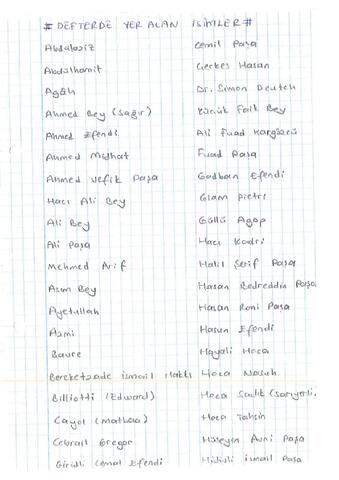 # DEFTERDE YER ALAN İSİMLER #
Abdülaziz
Abdülhamit
Agâh
Ahmed Bey (Sağır)
Ahmed Efendi
Ahmed Midhat
Ahmed Vefik Paşa
Hacı Ali Bey
Ali Bey
Ali Paşa
Mehmed Arif
Asım Bey
Ayetullah
Azmi
Baure
Bereketzade İsmail Hakkı
Billiotti (Edward)
Cayol (Matbaa)
Cebrail Gregor
Giridli Cemal Efendi
Cemil Paşa
Çerkes Hasan
Dr. Simon Deutch
Küçük Faik Bey
Ali Fuad
Fuad Paşa
Gadban Efendi
Giam Pietri
Güllü Agop
Hacı Kadri
Halil Şerif Paşa
Hasan Bedreddin Paşa
Hasan Remi Paşa
Hasan Efendi
Hayali Hoca
Hoca Nasuh
Hoca Sadık (Sarıyerli.
Hoca Tahsin
Hüseyin Avni Paşa
İsmail Paşa